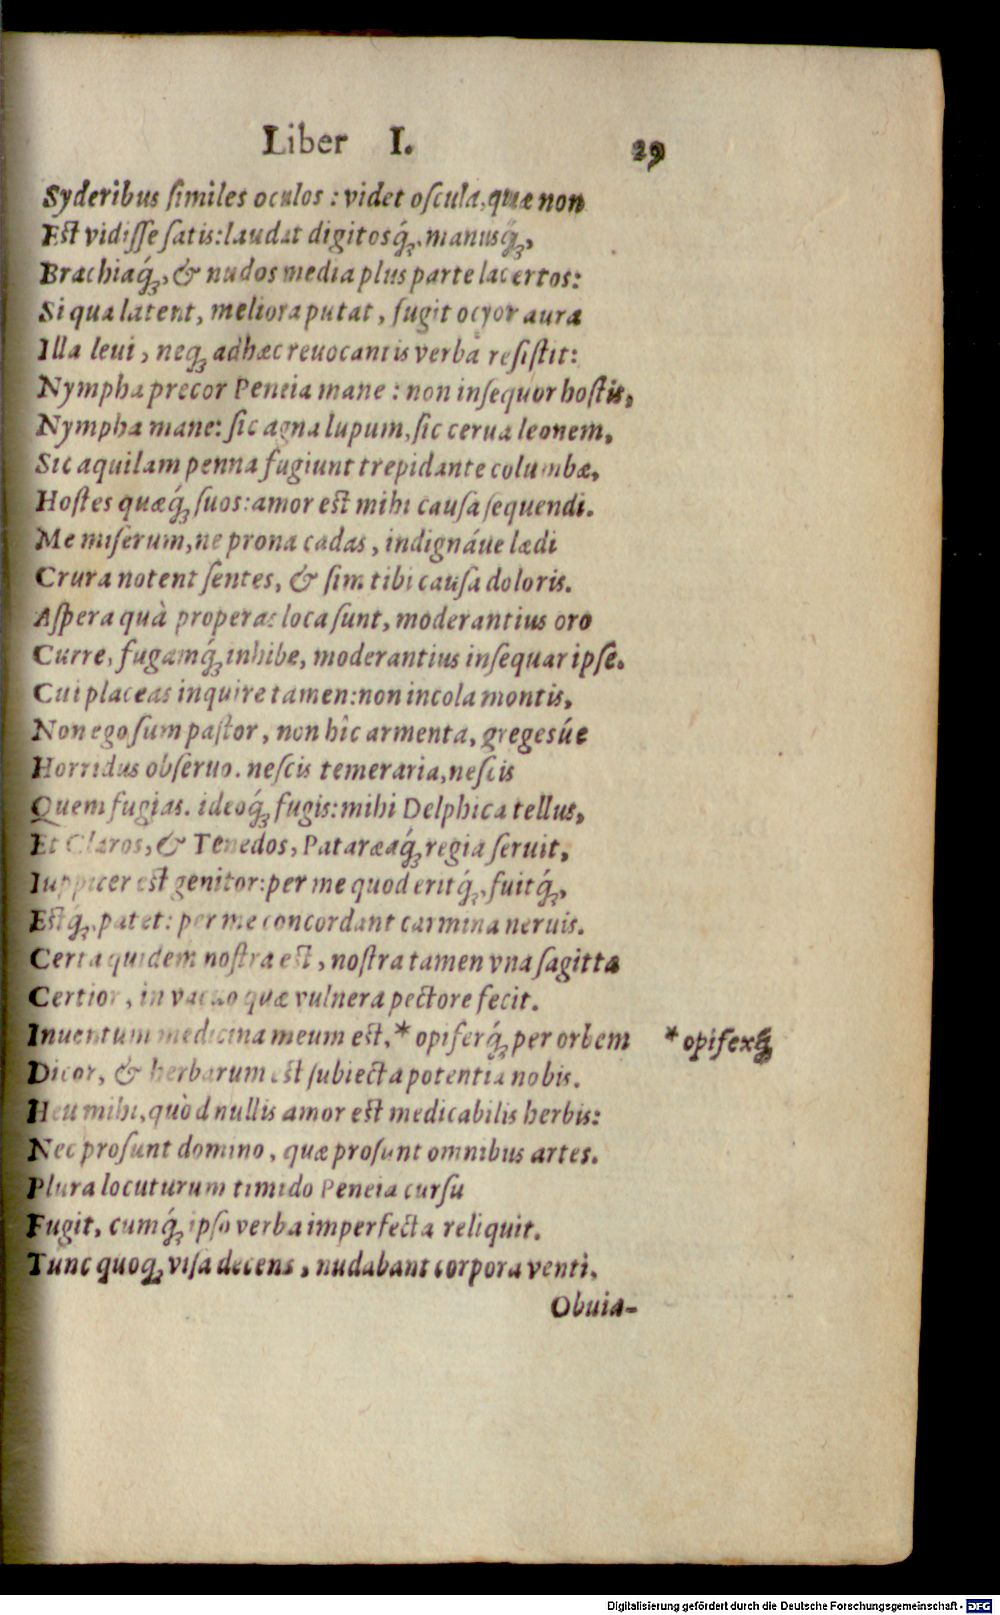 Liber I. 29
Syderibus ſimiles oculos : videt oſcula, quæ non
Eſt vidiſſe ſatis: laudat digitosq́;, manusq́;,
Brachiaq́;, & nudos media plus parte lacertos:
Si qua latent, meliora putat, fugit ocyor aura
Illa leui, neq; ad hæc reuocantis verba reſiſtit:
Nympha precor Peneia mane : non inſequor hoſtis,
Nympha mane: ſic agna lupum, ſic cerua leonem,
Sic aquilam penna fugiunt trepidante columbæ,
Hoſtes quæq́; ſuos: amor eſt mihi cauſa ſequendi.
Me miſerum, ne prona cadas, indignáue lædi
Crura notent ſentes, & ſim tibi cauſa doloris.
Aſpera quà properas loca ſunt, moderantius oro
Curre, fugamq́; inhibe, moderantius inſequar ipſe.
Cui placeas inquire tamen: non incola montis,
Non ego ſum paſtor, non hîc armenta, gregesúe
Horridus obſeruo. neſcis temeraria, neſcis
Quem fugias. ideoq́; fugis: mihi Delphica tellus,
Et Claros, & Tenedos, Pataræaq́; regia ſeruit,
Iuppicer eſt genitor: per me quod eritq́;, fuitq́;,
Eſtq́;, patet: per me concordant carmina neruis.
Certa quidem noſtra eſt, noſtra tamen vna ſagitta
Certior, in vacuo quæ vulnera pectore fecit.
Inuentum medicina meum eſt, * opiferq́; per orbem * opifexq́;
Dicor, & herbarum eſt ſubiecta potentia nobis.
Heu mihi, quòd nullis amor eſt medicabilis herbis:
Nec proſunt domino, quæ proſunt omnibus artes.
Plura locuturum timido Peneia curſu
Fugit, cumq́; ipſo verba imperfecta reliquit.
Tunc quoq; viſa decens, nudabant corpora venti,
Obuia-
Digitalisierung gefördert durch die Deutsche Forschungsgemeinschaft - DFG